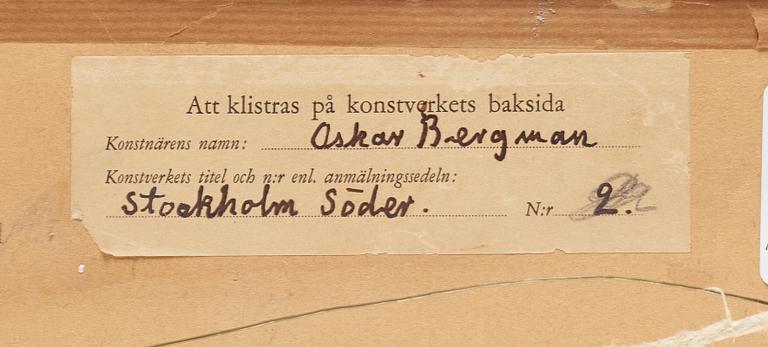 Att klistras på konstverkets baksida
Konstnärens namn: Oskar Bergman
Konstverkets titel och n:r enl. anmälningssedeln:
Stockholm Söder. N:r 2.